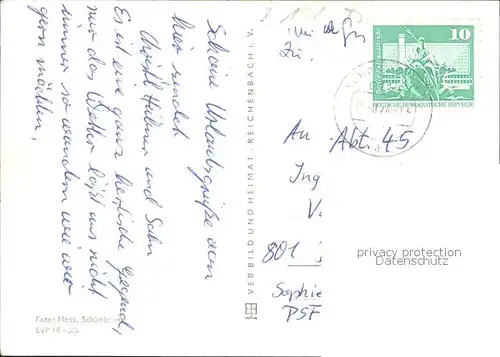 Schöne Urlaubsgrüße von
hier sendet
Christl Hübner und Sohn
Es ist eine ganz herrliche Gegend,
nur das Wetter läßt uns nicht
immer so wandern wie wir
gern möchten.
Foto: Hess,
EVP
VEB BILD UND HEIMAT · REICHENBACH i. V.
10
DEUTSCHE DEMOKRATISCHE REPUBLIK
An Abt. 45
Ing
V
801
Sophie
PSF
privacy protection
Datenschutz